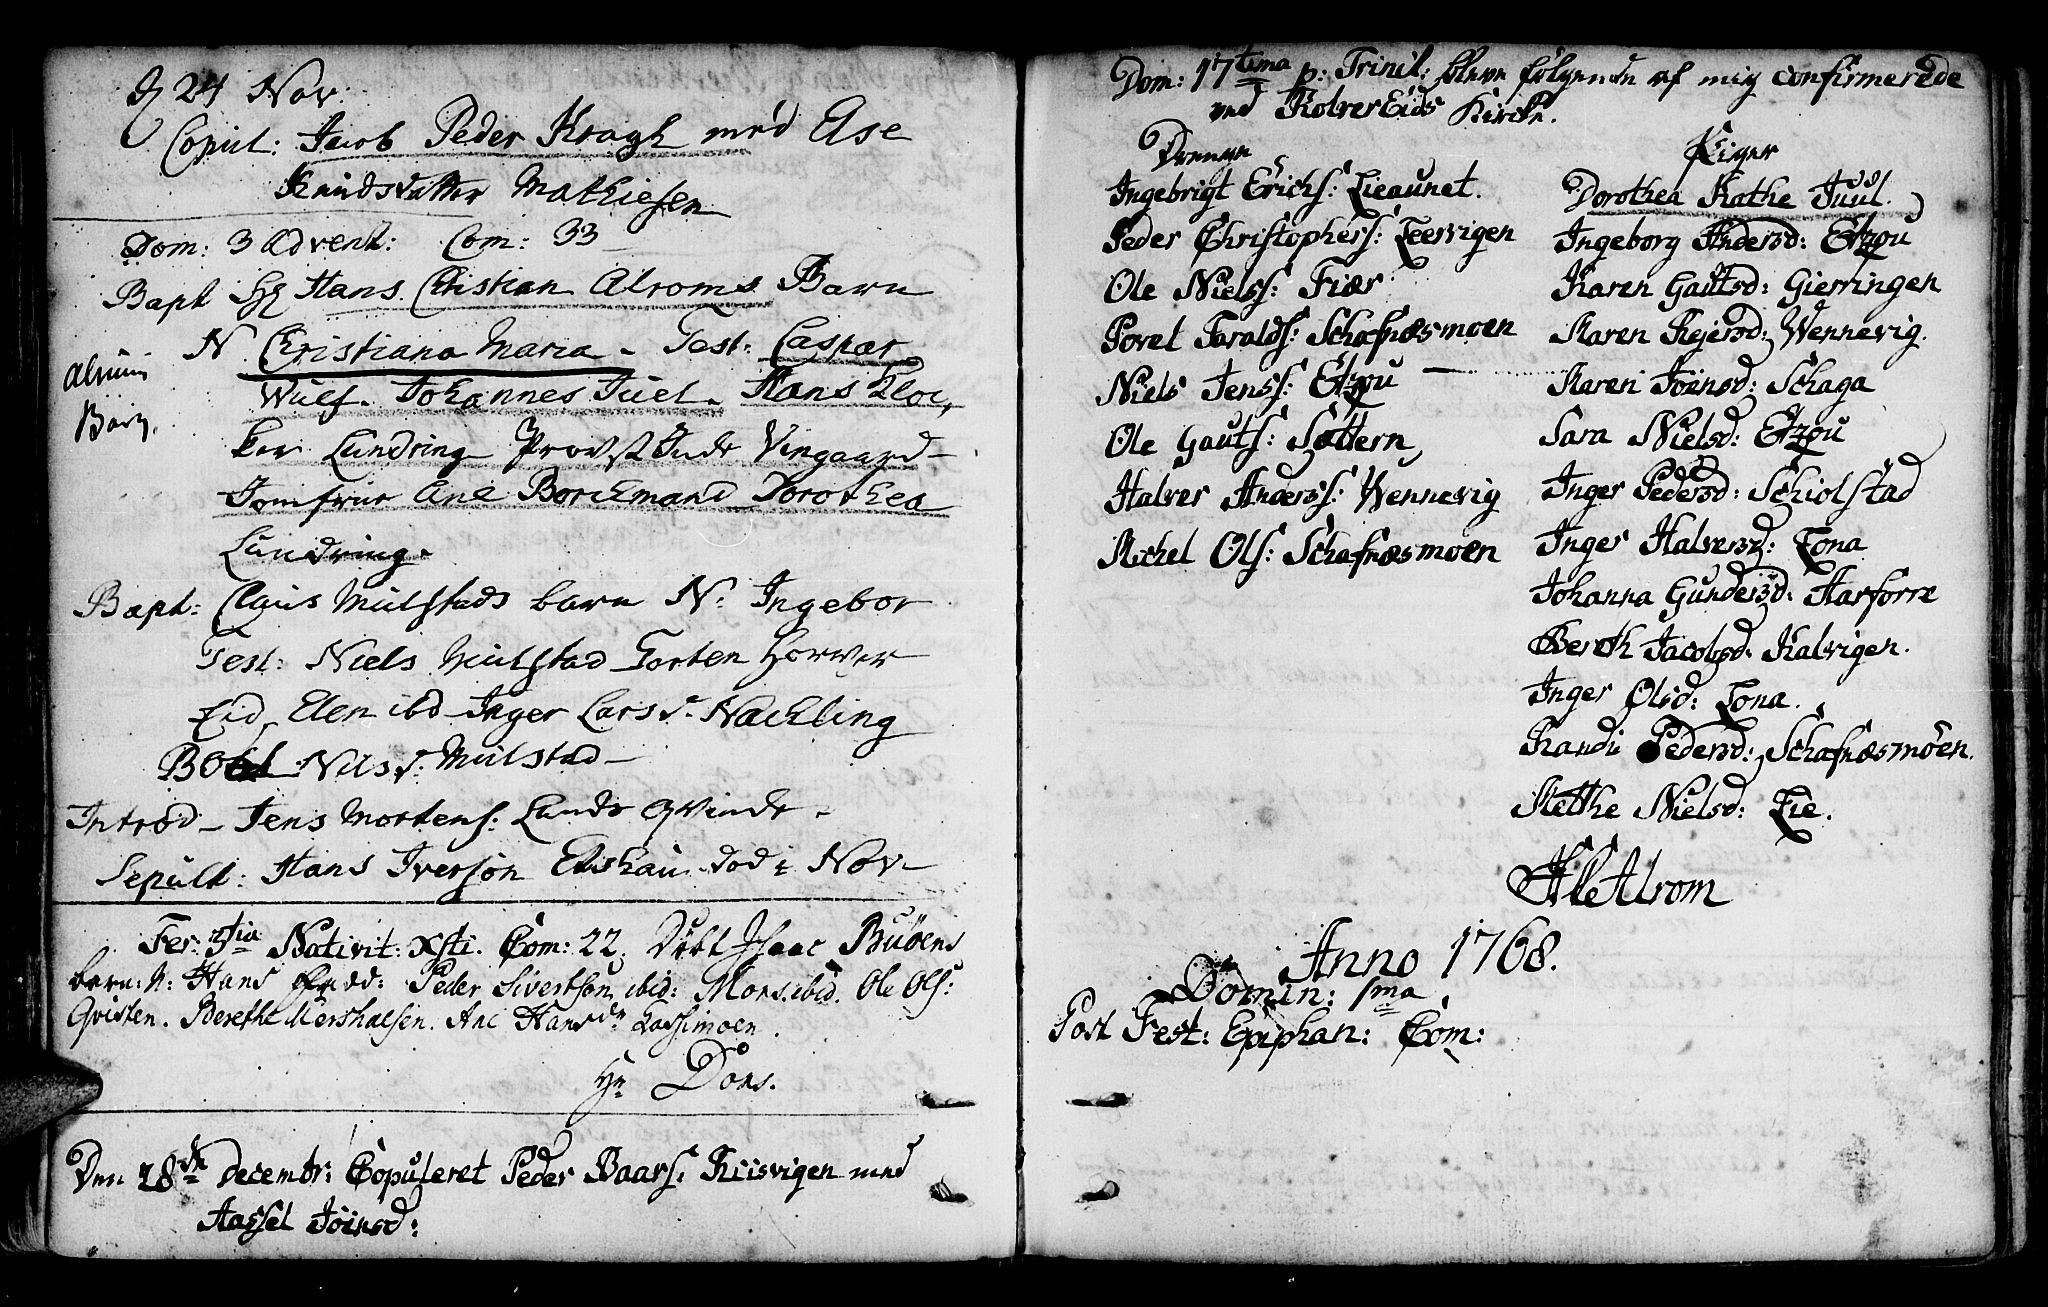 d 24 Nov:
Copul: Jacob Peder Kragh med Else
Knudsdatter Mathiesen
Dom: 3 Advent: Com: 33
Bapt Hr Hans Christian Alroms Barn
N Christiana Maria - Test: Caspar
Alrum
Barn.
Wulf. Johannes Juel. Hans Kloc,
ker Lundring Provst Inde Vingaard
Jomfrue Ane Borchmand Dorothea
Lundring.
Bapt: Claus Mulstads barn N. Ingebor
Test: Niels Mulstad Torten Horver
Eid, Elen ibd Inger Larsd. Nackling
Nilsd: Mulstad
Introd - Jens Mortens: Lunds Qvinde
Sepult: Hans Iverson Elshau död i Nov
Fer: 3tia Nativit: Xsti. Com: 22. Döbt Isaac Buöens
barn: N: Hans Fadd: Peder Sivertson ibid: Mons ibid. Ole Ols:
Qvisten. Berethe Ane Hansdr
Hr Döns.
Den 28de Decembr: Copuleret Peder Baars: Riisvigen med
Aassel Joensd:
Dom: 17tima p: Trinit: bleve fölgende af mig confirmerede
ved Kolver Eids Kirche.
Drenge
Ingebrigt Erichs: Lieaunet.
Peder Christophers: Leervigen
Ole Niels: Fiær
Povel Haralds: Schafnæsmoen
Niels Jens: Etzou
Ole Gauts: Sættern
Halver Anders: Wennevig
Michel Ols: Schafnæsmoen
Piger
Dorothea Kathe Juul.
Ingeborg Andersd: Etzou
Karen Gautsd: Gierringen
Maren Rejersd: Wennevig.
Karen Joensd: Schaga
Sara Nielsd: Etzou
Inger Pedersd: Schiolstad
Inger Halversd: Fona
Johanna Gundersd: Harforre
Bereth Jacobsd: Kalvigen.
Inger Olsd: Fona.
Randi Pedersd: Schafnæsmoen.
Methe Nielsd: Lie.
Alrom
Anno 1768.
Domin: 1ma
Post Fest: Epiphan: Com: